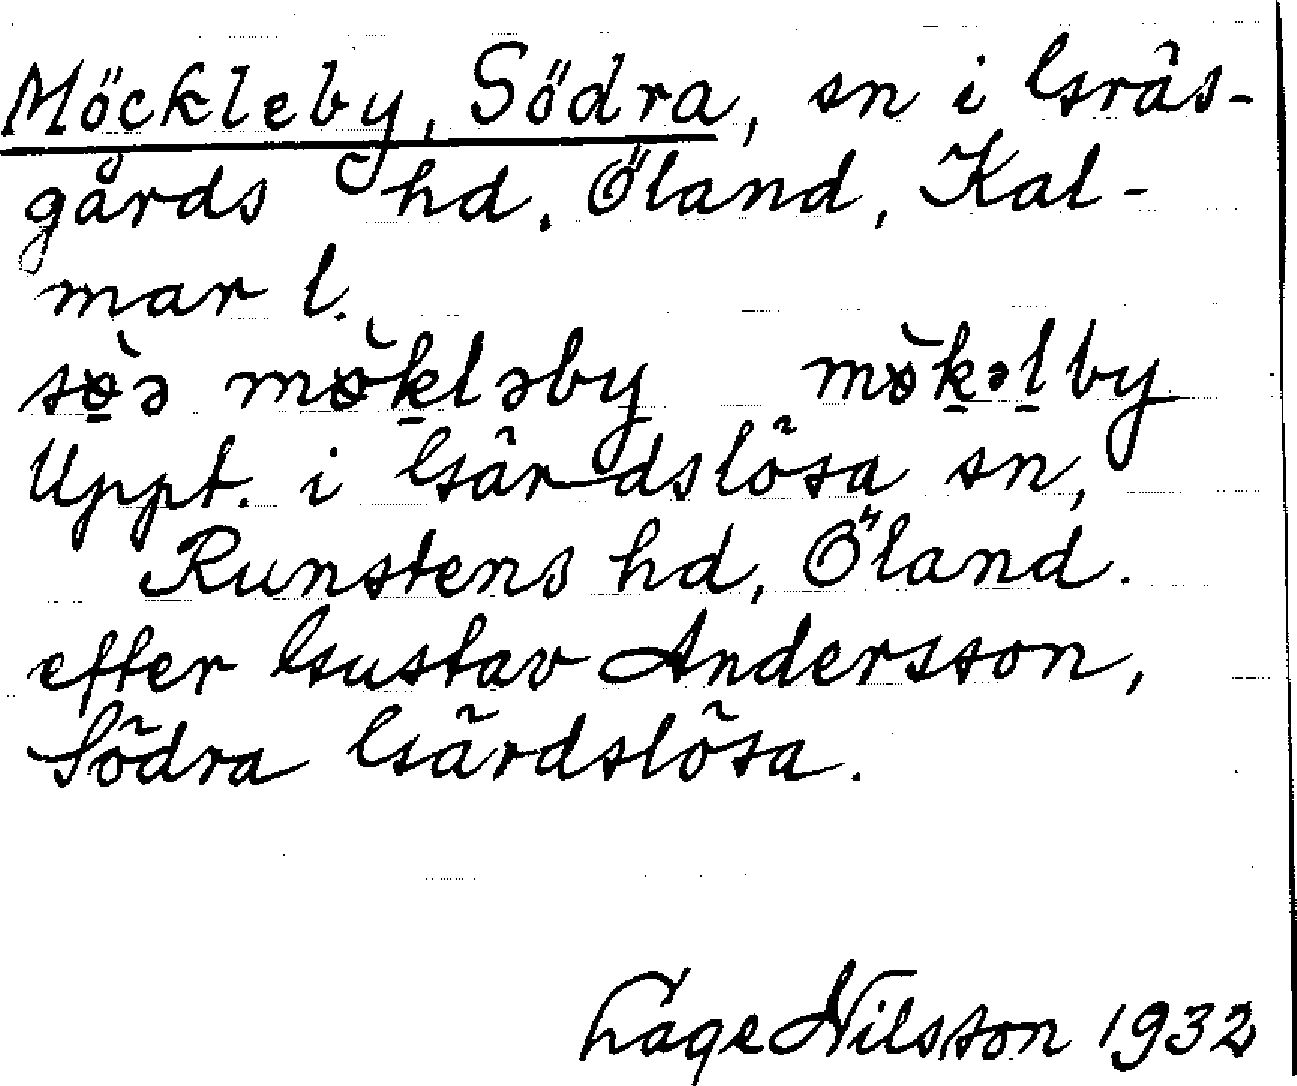 Möckleby, Södra, sn i Gräs-
gårds hd. Öland, Kal-
mar l.
sø̠̀ə mø̀k̠ləby mø̀k̠əl̠by
Uppt. i Gärdslösa sn,
Runstens hd, Öland.
efter Gustav Andersson,
Södra Gärdslösa.
Lage Nilsson 1932